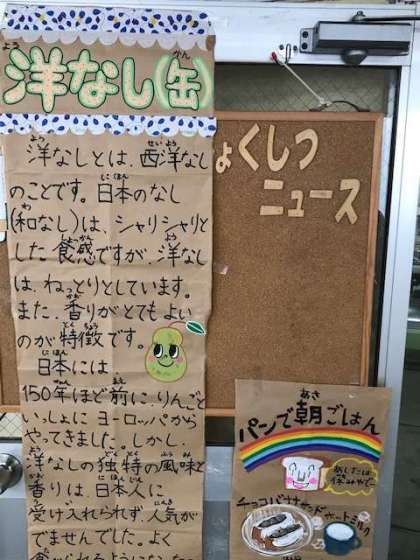 洋なし(缶)
洋なしとは、西洋なし
のことです。日本のなし
(和なし)は、シャリシャリと
した食感ですが、洋なし
は、ねっとりとしています。
また、香りがとてもよい
のが特徴です。
日本には、
150年ほど前に、りんごと
いっしょにヨーロッパから
やってきました。しかし、
洋なしの独特の風味と
香りは、日本人に
受け入れられず、人気が
でませんでした。よく
くしつ
ニュース
パンで朝ごはん
あしたは
休みやで
チョコバナナサンドとホットミルク